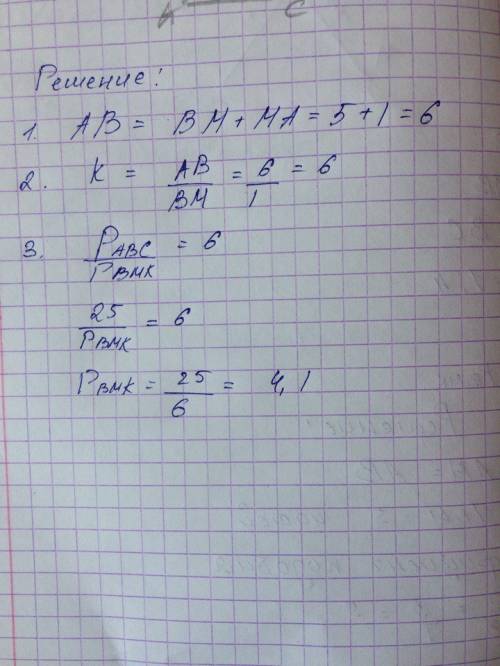 A C
Решение!
1. AB = BM + MA = 5 + 1 = 6
2. K = AB/BM = 6/1 = 6
3. PABC/PBMK = 6
25/PBMK = 6
PBMK = 25/6 = 4,1